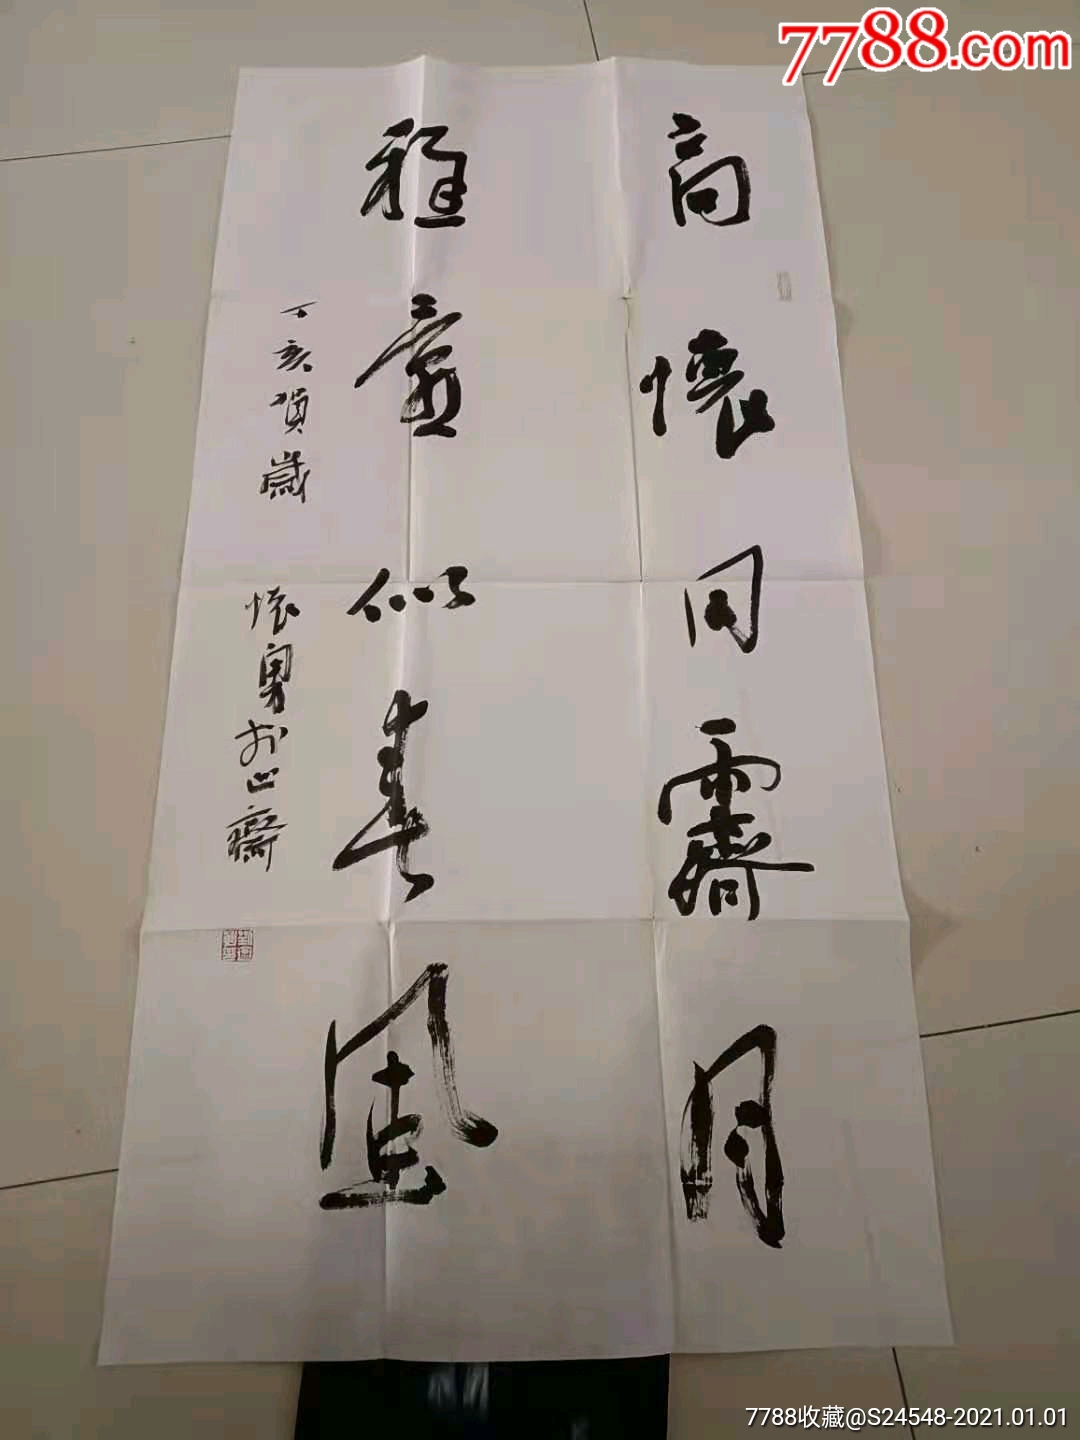 7788.com
高懷同霽月
雅意似春風
丁亥賀歲
懷勇於山齋
7788收藏@S24548-2021.01.01